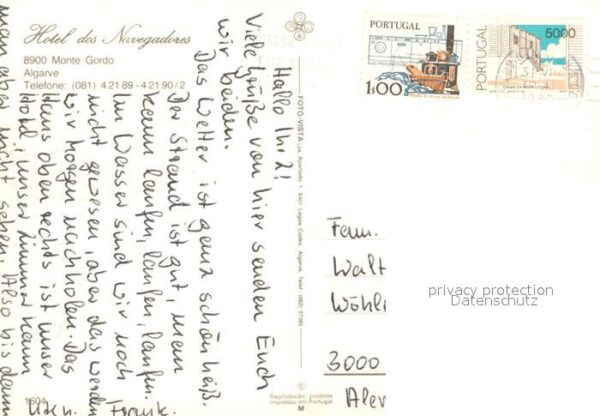 Hotel dos Navegadores
8900 Monte Gordo
Algarve
Telefone: (081) 4 21 89 - 4 21 90 / 2
Hallo Ihr 2!
Viele Grüße von hier senden Euch
wir beiden.
Das Wetter ist ganz schön heiß.
Der Strand ist gut, man
kann laufen, laufen, laufen.
Im Wasser sind wir noch
nicht gewesen, aber das werden
wir morgen nachholen. Das
Haus oben rechts ist unser
Hotel, unser Zimmer kann
man aber nicht sehen. Also bis dann
Frank
1604
FOTO-VISTA
Reprodução proibida
Impresso em Portugal
M
PORTUGAL
1$00
PORTUGAL
5000
Fam.
Walt
Wöhl
3000
privacy protection
Datenschutz